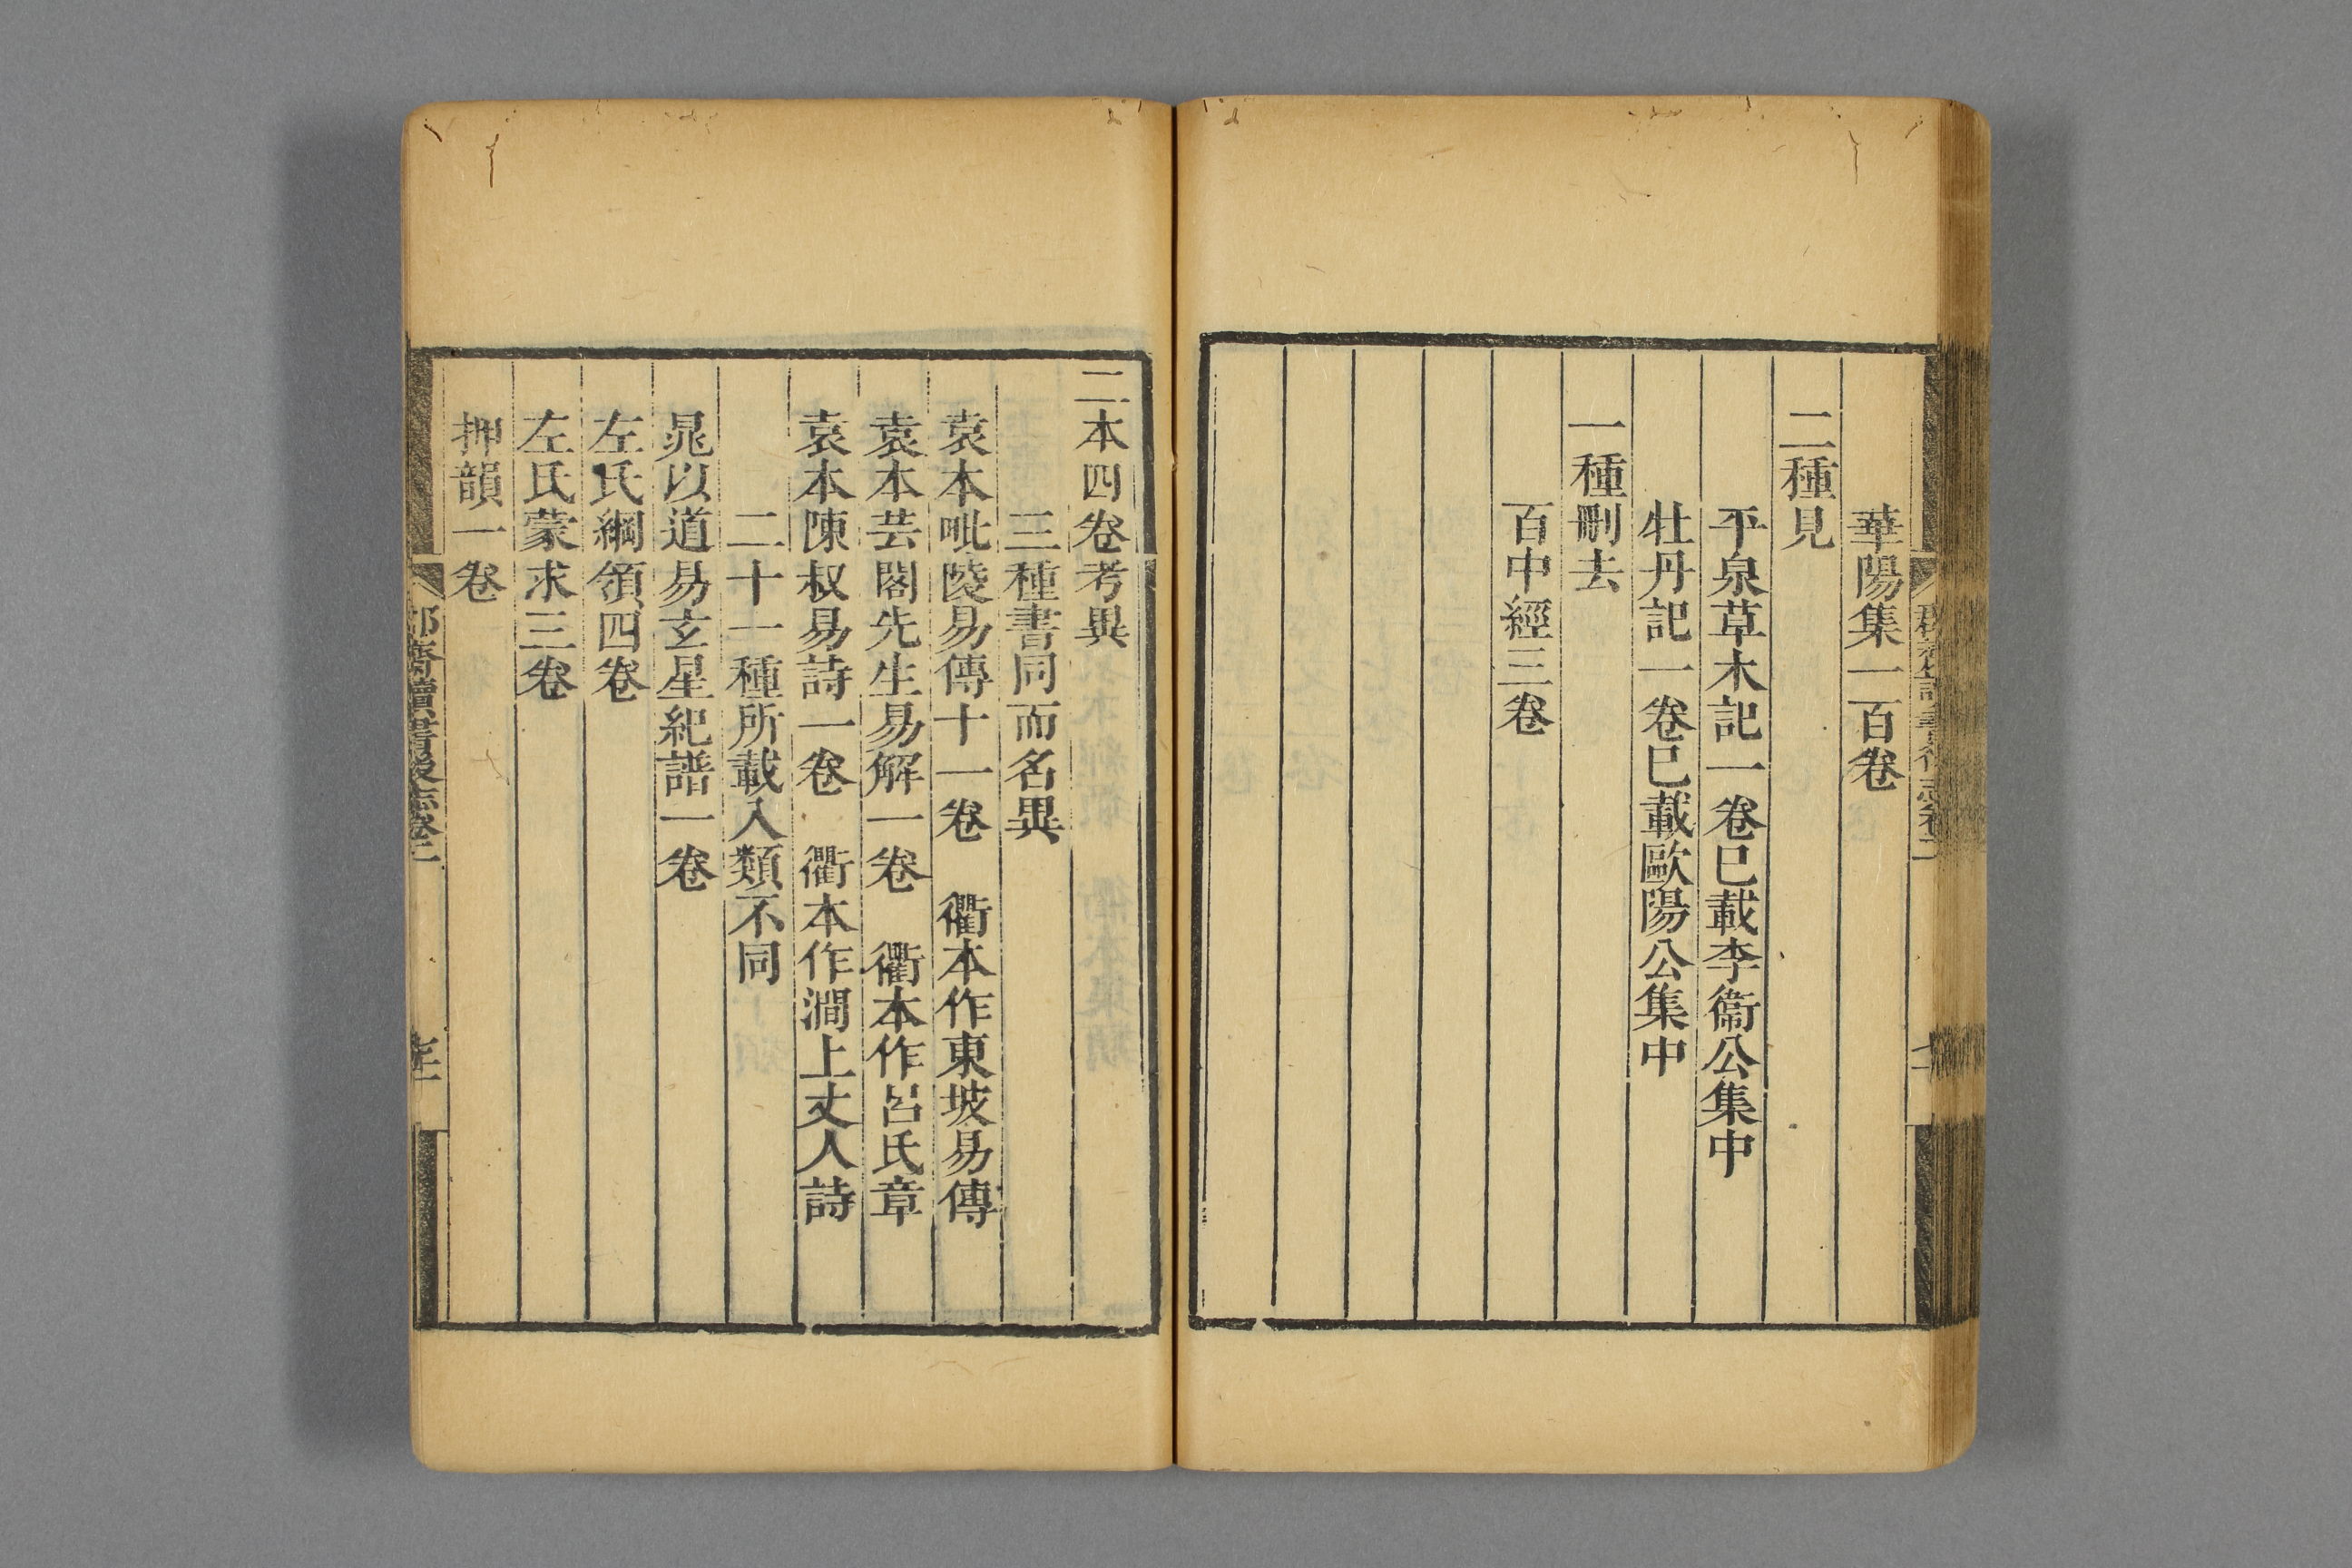 華陽集一百卷
二種見
平泉草木記一卷巳載李衞公集中
牡丹記一卷巳載歐陽公集中
一種刪去
百中經三卷
二本四卷考異
三種書同而名異
袁本毗陵易傳十一卷　衢本作東坡易傳
袁本芸閣先生易解一卷　衢本作呂氏章
袁本陳叔易詩一卷　衢本作澗上丈人詩
二十一種所載入類不同
晁以道易玄星紀譜一卷
左氏綱領四卷
左氏蒙求三卷
押韻一卷
郡齋讀書後志卷二